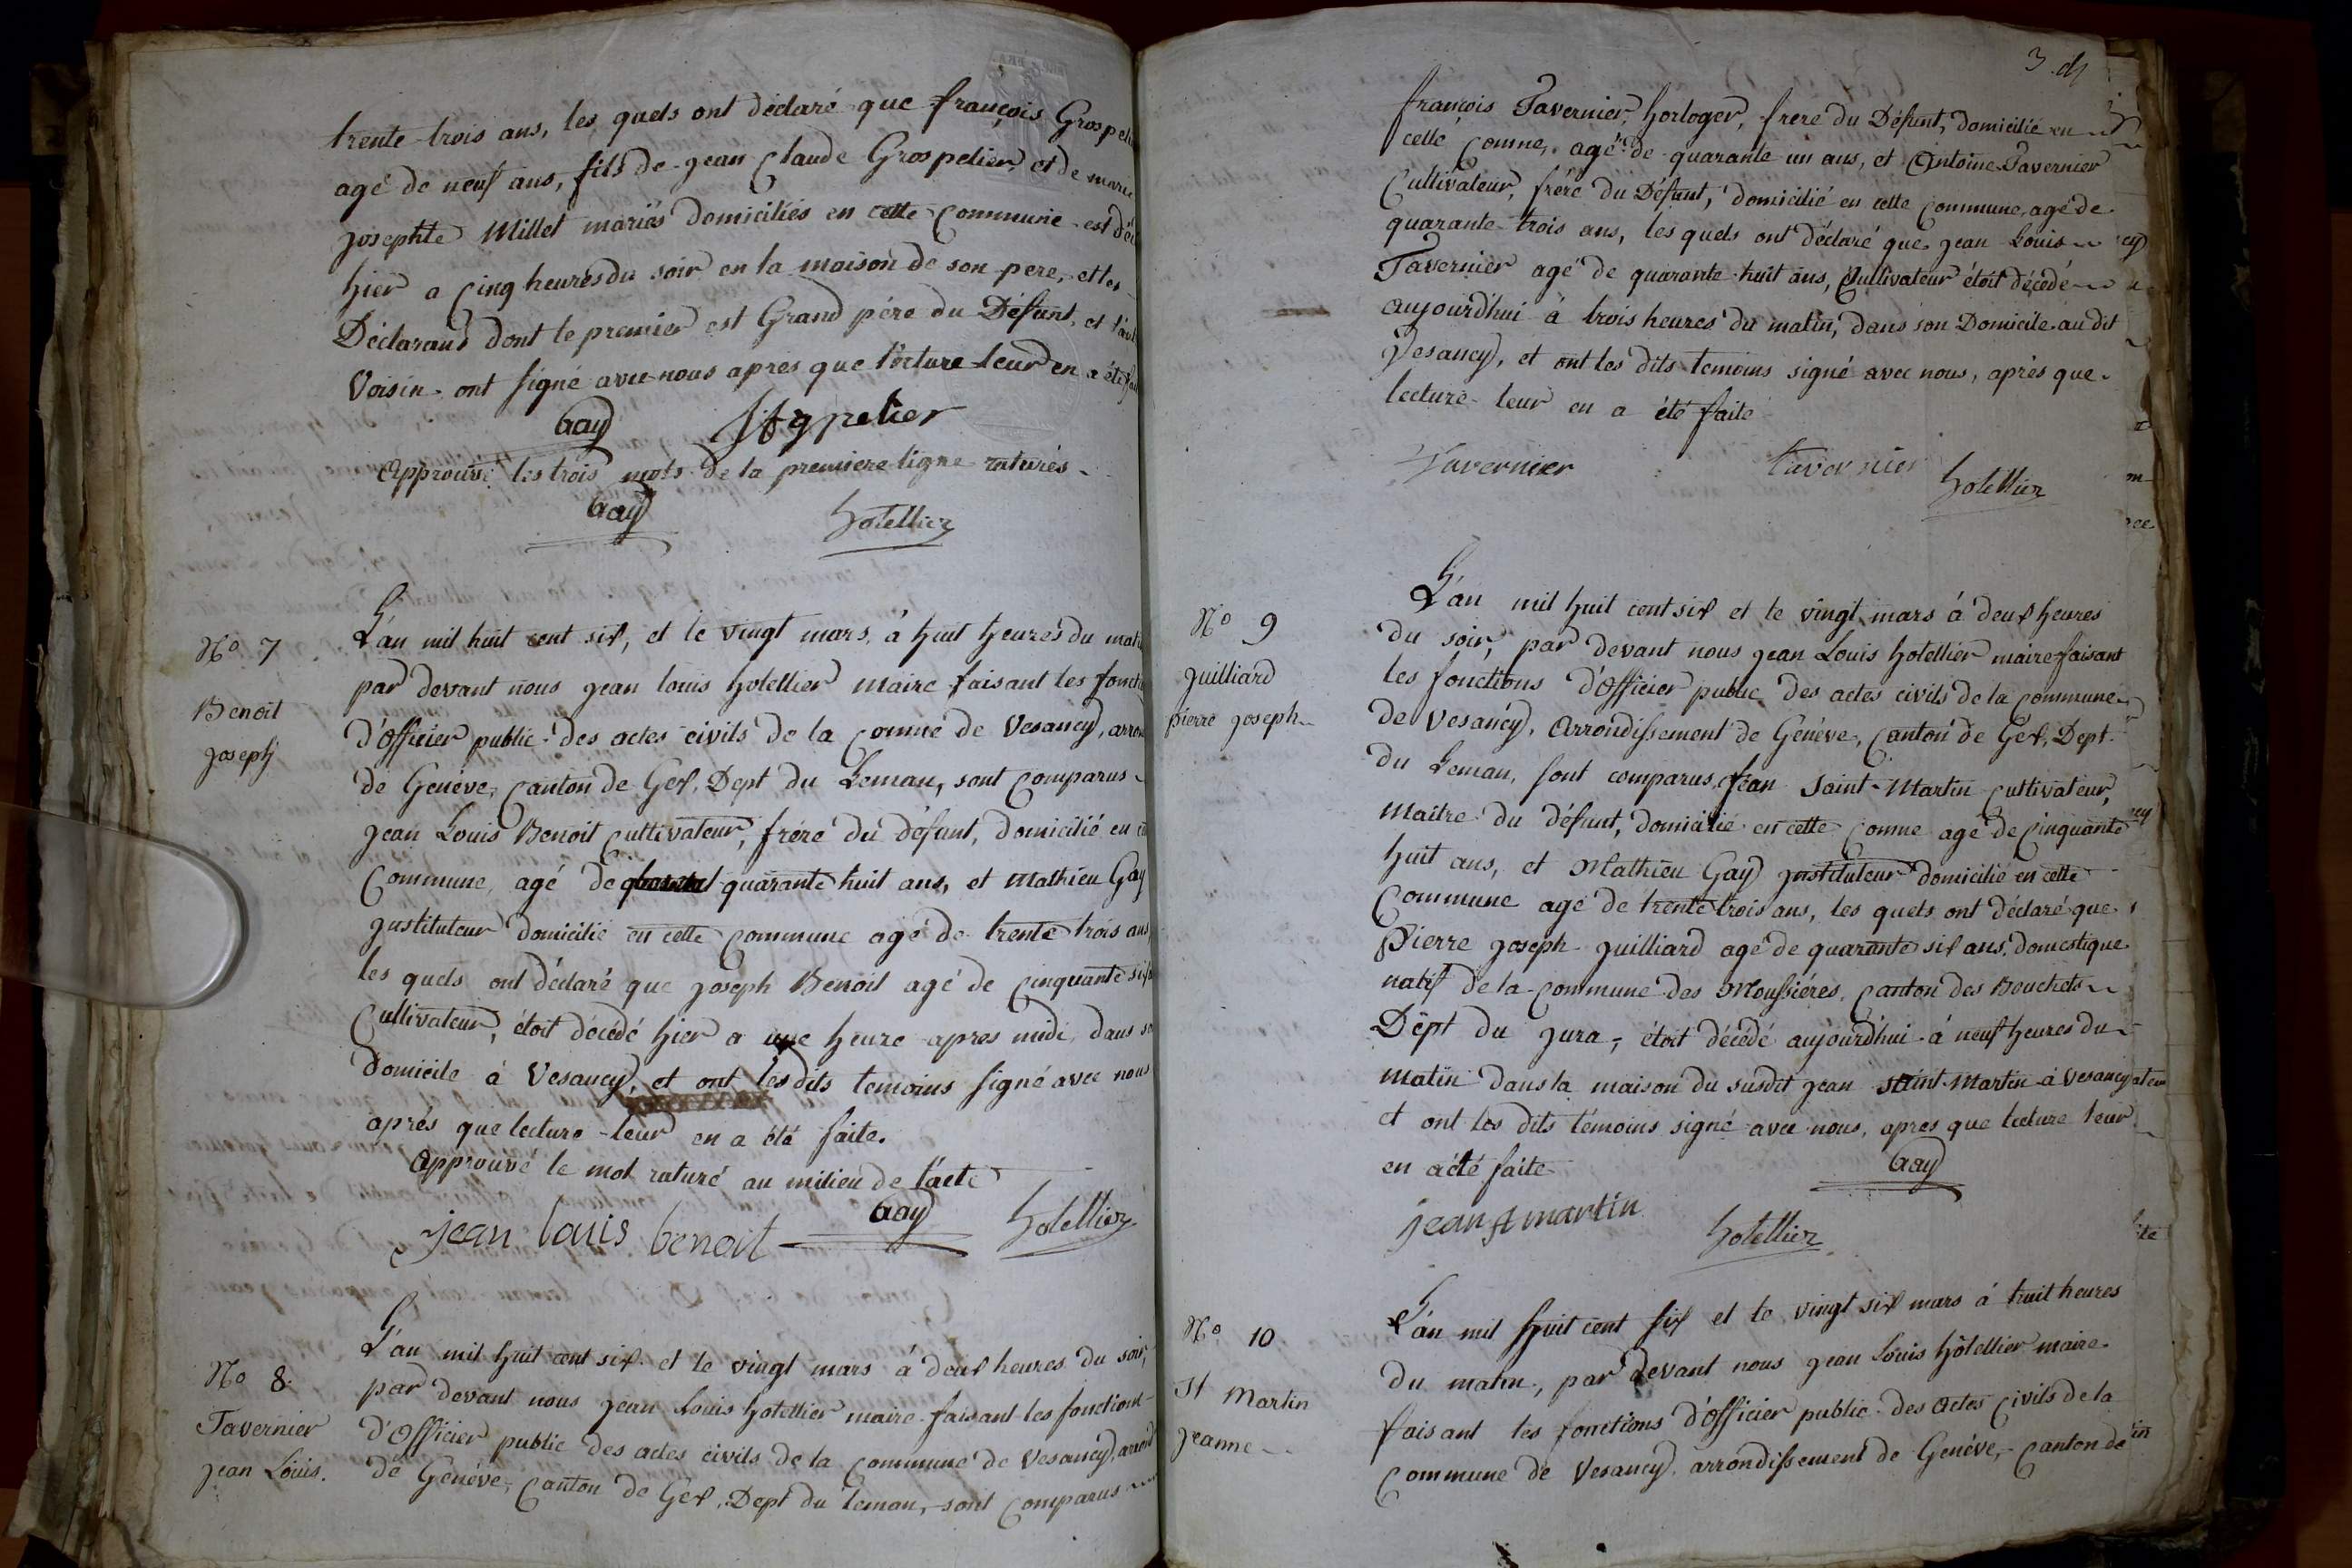 trente trois ans, les quels ont déclaré que françois
agé de neuf ans, fils de jean Claude Grospelier, et de marie
josephte Millet mariés domiciliés en cette Commune est
hier a Cinq heures du soir en la maison de son pere, et les
Déclarans dont le premier est Grand pére du Défunt, et
Voisin ont signé avec nous apres que lecture leur en a été
Gay
Approuvé les trois mots de la premiere ligne raturés
Gay hotellier
No 7
Benoit
joseph
L'an mil huit cent six, et le vingt mars, à huit heures du
par devant nous jean louis hotellier maire faisant les
d'Officier public des actes civils de la Comne de Vesancy,
de Genéve, Canton de Gex, Dept du Leman, sont Comparus
jean Louis Benoit Cultivateur, frére du défunt, domicilié en
Commune, agé de quarante huit ans, et Mathieu Gay
jnstituteur domicilié en cette Commune agé de trente trois ans,
les quels ont déclaré que joseph Benoit agé de Cinquante
Cultivateur, étoit décédé hier a une heure apres midi, dans
domicile à Vesancy, et ont les dits témoins signé avec nous
aprés que lecture leur en a été faite.
Approuvé le mot raturé au milieu de l'acte
jean louis benoit Gay hotellier
No 8
Tavernier
jean Louis.
L'an mil huit cent six et le vingt mars à deux heures du soir,
par devant nous jean Louis hotellier maire faisant les fonctions
d'Officier public des actes civils de la Commune de Vesancy, arrond
de Genéve, Canton de Gex, Dept du Leman, sont Comparus
3.
françois Tavernier, horloger, frere du Défunt, domicilié en
cette Comne, agé de quarante un ans, et Antoine Tavernier
Cultivateur, frére du Défunt, domicilié en cette Commune, agé de
quarante trois ans, les quels ont déclaré que jean Louis
Tavernier agé de quarante huit ans, Cultivateur étoit décédé
aujourd'hui à trois heures du matin, dans son Domicile au dit
Vesancy, et ont les dits temoins signé avec nous, aprés que
lecture leur en a été faite
Tavernier tavernier hotellier
No 9
juilliard
pierre joseph
L'an mil huit cent six et le vingt mars à deux heures
du soir, par devant nous jean Louis hotellier maire faisant
les fonctions d'Officier public des actes civils de la Commune
de Vesancy, Arrondissement de Genéve, Canton de Gex, Dept
du Leman, sont comparus jean Saint-Martin Cultivateur,
Maitre du défunt, domicilié en cette Comne agé de Cinquante
huit ans, et Mathieu Gay jnstituteur domicilié en cette
Commune agé de trente trois ans, les quels ont déclaré que
Pierre joseph juilliard agé de quarante six ans, domestique
natif de la Commune des Moussiéres, Canton des Bouchets
Dept du jura, étoit décédé aujourd'hui à neuf heures du
matin dans la maison du susdit jean saint-Martin à Vesancy
et ont les dits témoins signé avec nous, apres que lecture leur
en a été faite Gay
jean st martin hotellier
No 10
St Martin
jeanne
L'an mil huit cent six et le vingt six mars à huit heures
du matin, par devant nous jean Louis hôtellier maire
faisant les fonctions d'Officier public des actes Civils de la
Commune de Vesancy, arrondissement de Genéve, Canton de